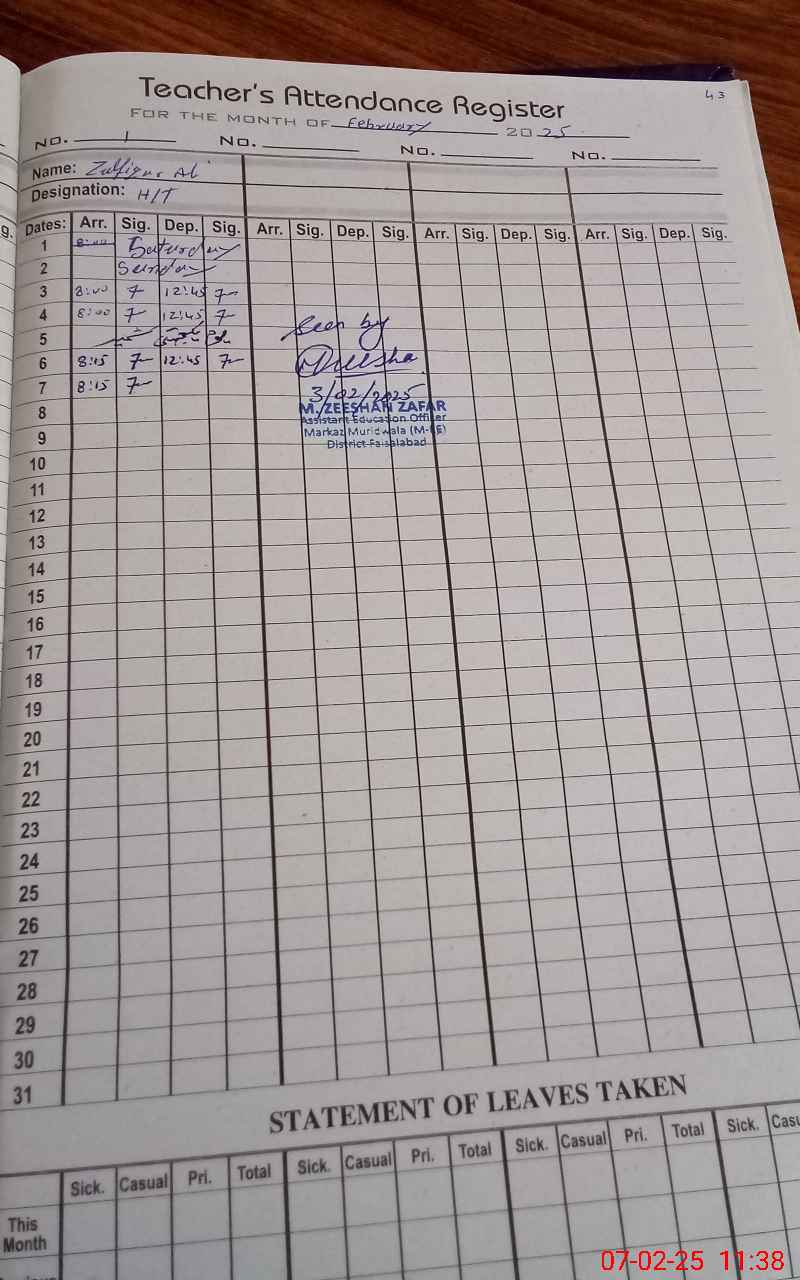 43
Teacher's Attendance Register
FOR THE MONTH OF February 2025
No. 1 No. No. No.
Name: Zulfiqar Ali
Designation: H/T
Dates: Arr. Sig. Dep. Sig. Arr. Sig. Dep. Sig. Arr. Sig. Dep. Sig. Arr. Sig. Dep. Sig.
1 8:00 Saturday
2 Sunday
3 8:00 12:45
4 8:00 12:45
Seen by
5
6 8:15 12:45
7 8:15
3/02/2025
M. ZEESHAN ZAFAR
8
Assistant Education Officer
Markaz Muridwala (M-EE)
9
District Faisalabad
10
11
12
13
14
15
16
17
18
19
20
21
22
23
24
25
26
27
28
29
30
31
STATEMENT OF LEAVES TAKEN
Sick. Casual Pri. Total Sick. Casual Pri. Total Sick. Casual Pri. Total Sick.
This
Month
07-02-25 11:38